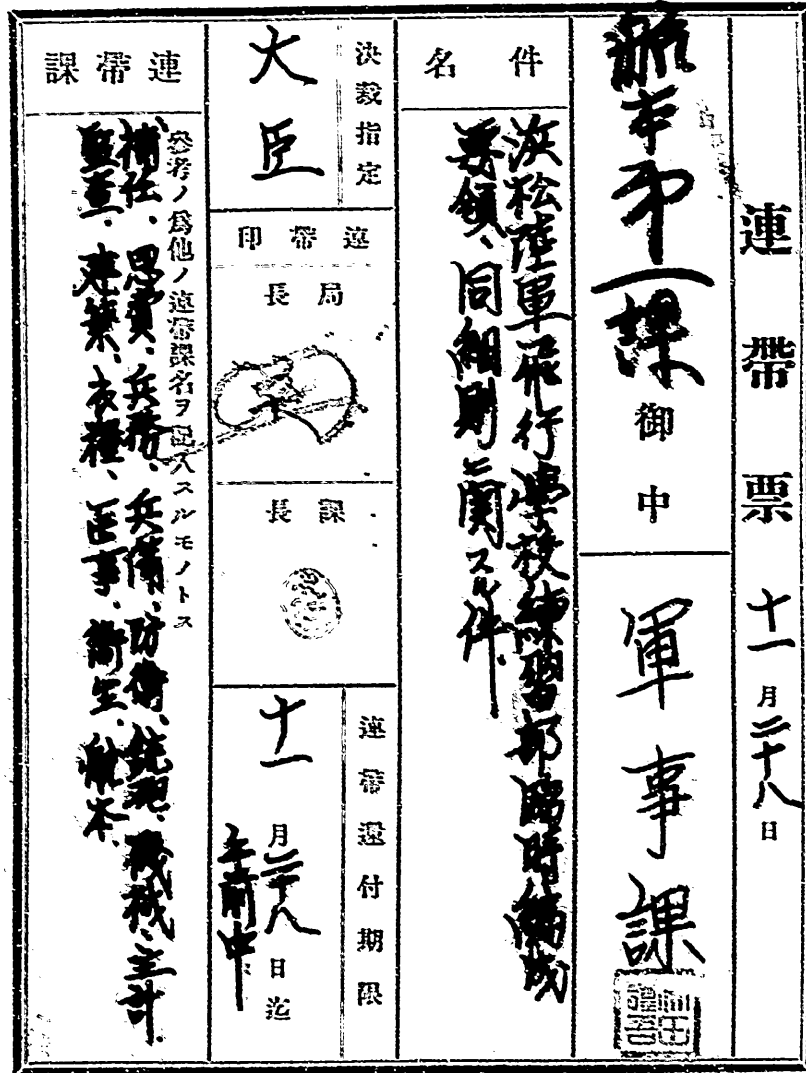 連帶票 十一月二十八日
航本第一課 御中
軍事課
件名
浜松陸軍飛行學校練習部臨時編成
要領、同細則ニ関スル件
決裁指定
大臣
連帶印
局長
課長
連帶還付期限
十一月二十八日迄
午前中
連帶課
參考ノ爲他ノ連帶課名ヲ記入スルモノトス
補任、恩賞、兵務、兵備、防衛、銃砲、機械、主計
監査、建築、衣糧、医事、衛生、航本、